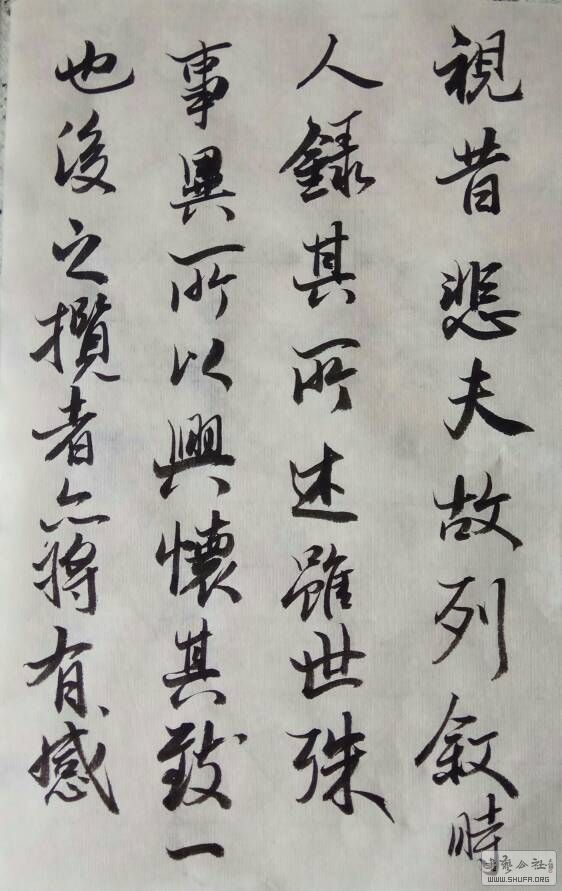 視昔悲夫故列叙時
人録其所述雖世殊
事異所以興懷其致一
也後之攬者亦將有感
WWW.SHUFA.ORG